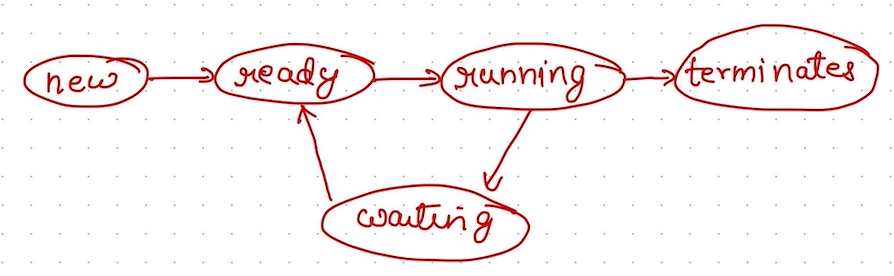 new ready running terminates
waiting